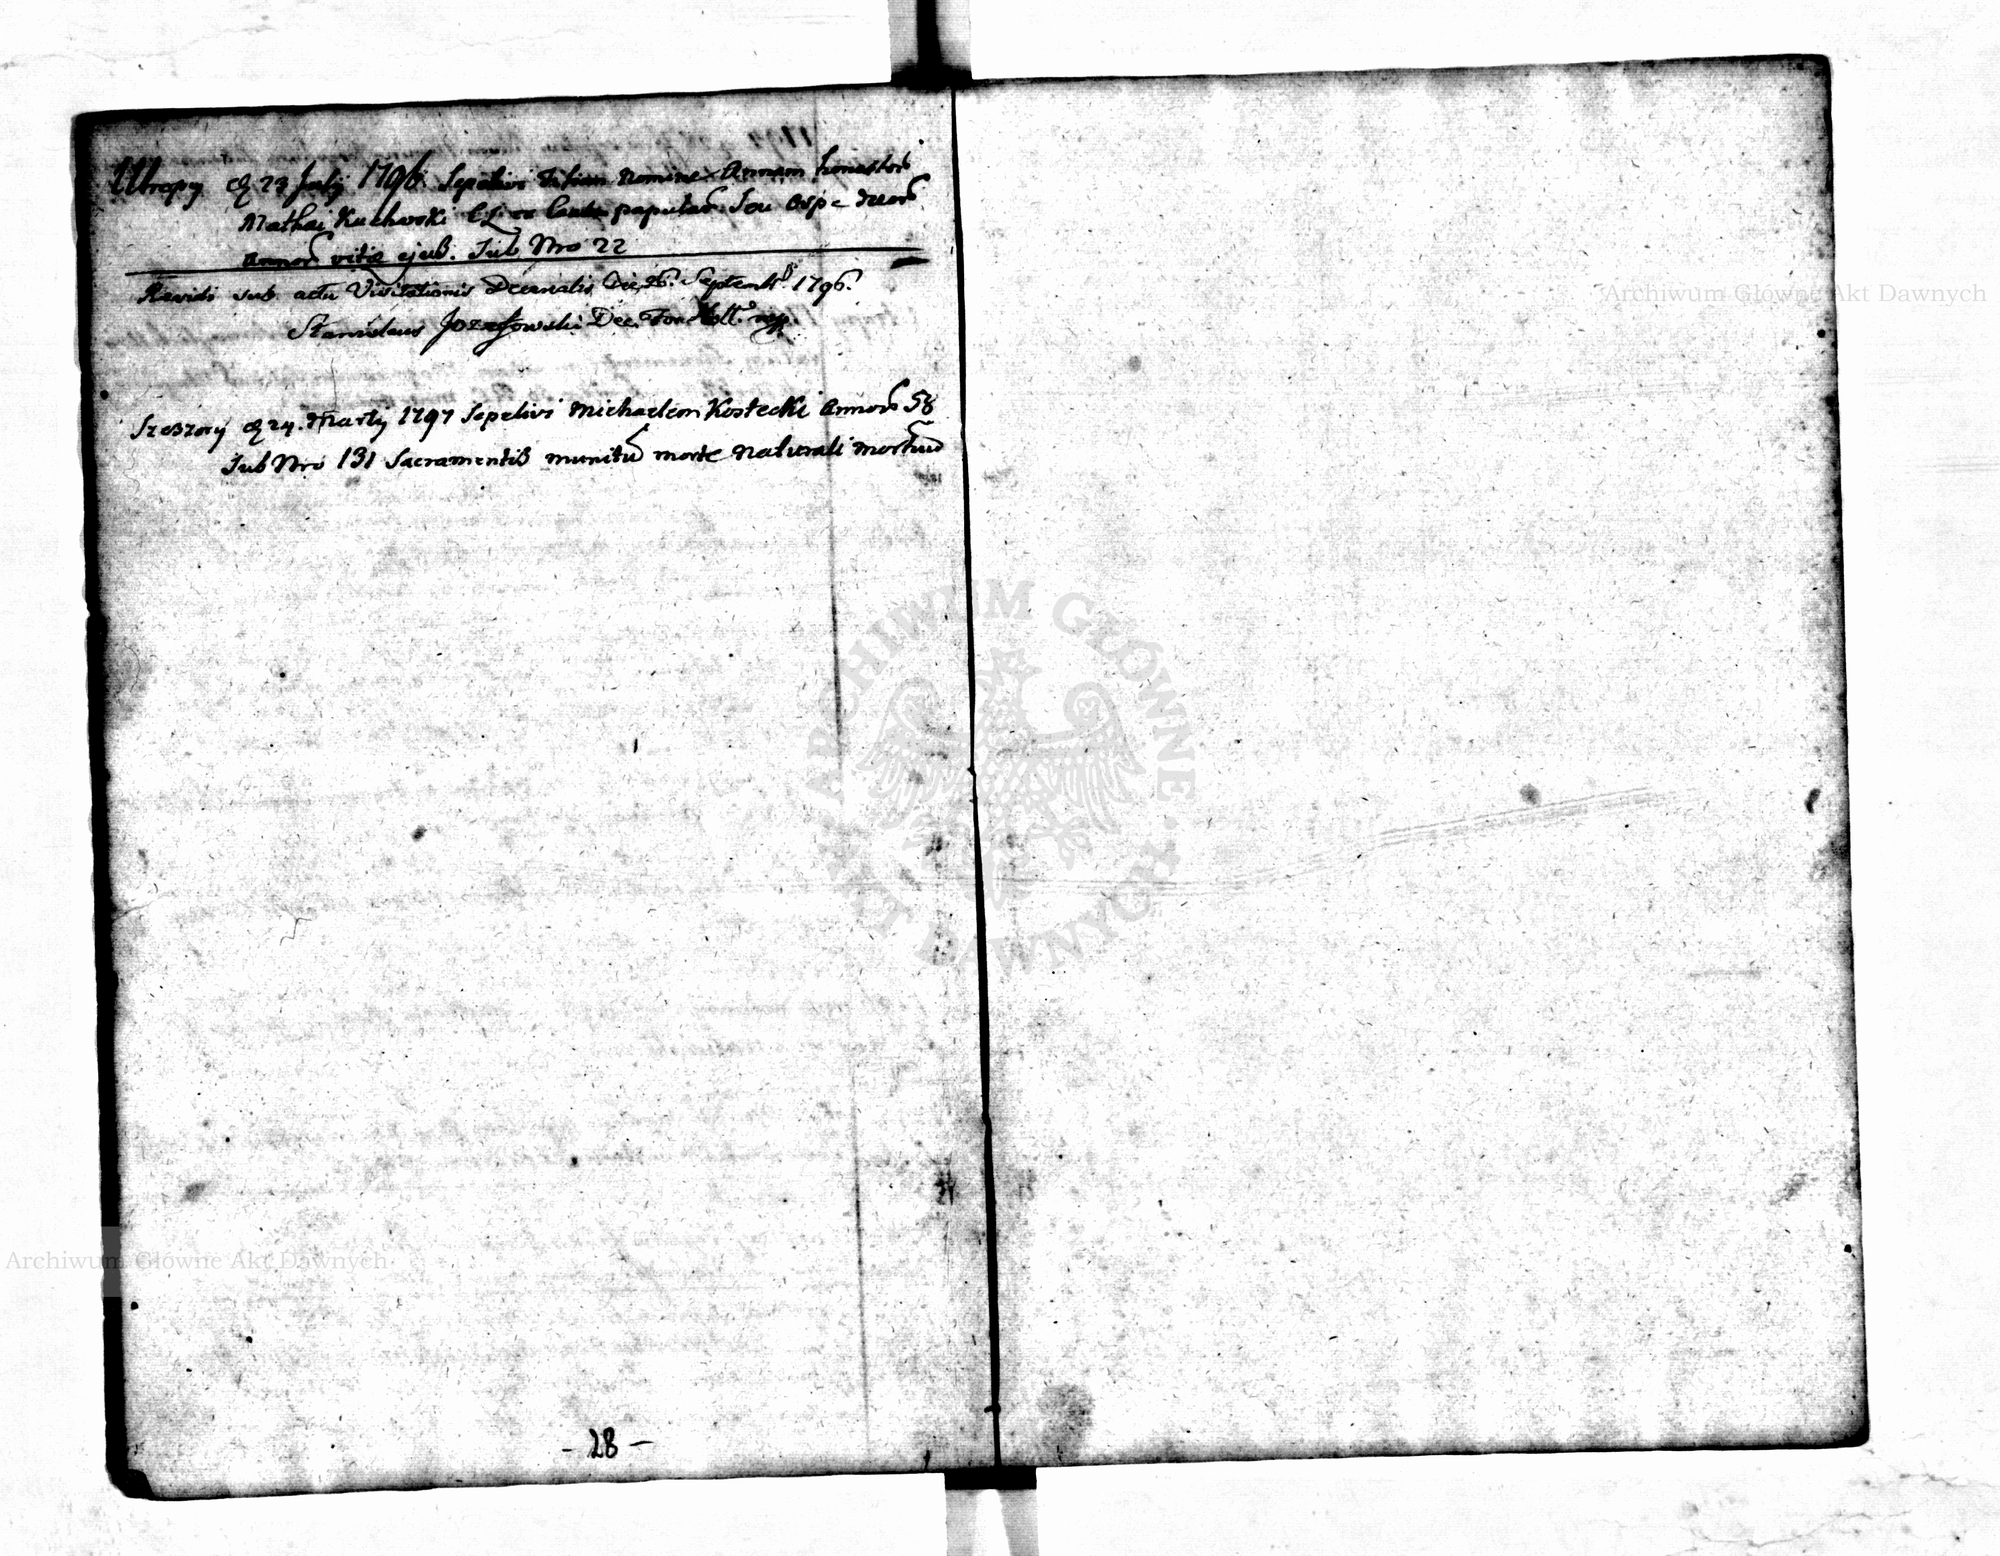 Utropy d 23 July 1796 Sepelivi Filiam nomine Annam honestor
Mathai Kucharski papularū Seu Ospe duorū
Annorū vitæ ejus. Sub Nro 22
Revidi sub actu Visitationis Decanalis Die 26. Septembr 1796.
Stanislaus Jozefowski Dec.
Szeszory d 24. Martij 1797 Sepelivi Michaelem Kostecki Annorū 58
Sub Nro 131 Sacramentis munitū morte naturali mortuū
- 28 -
Archiwum Główne Akt Dawnych
ARCHIWUM GŁÓWNE AKT DAWNYCH
Archiwum Główne Akt Dawnych